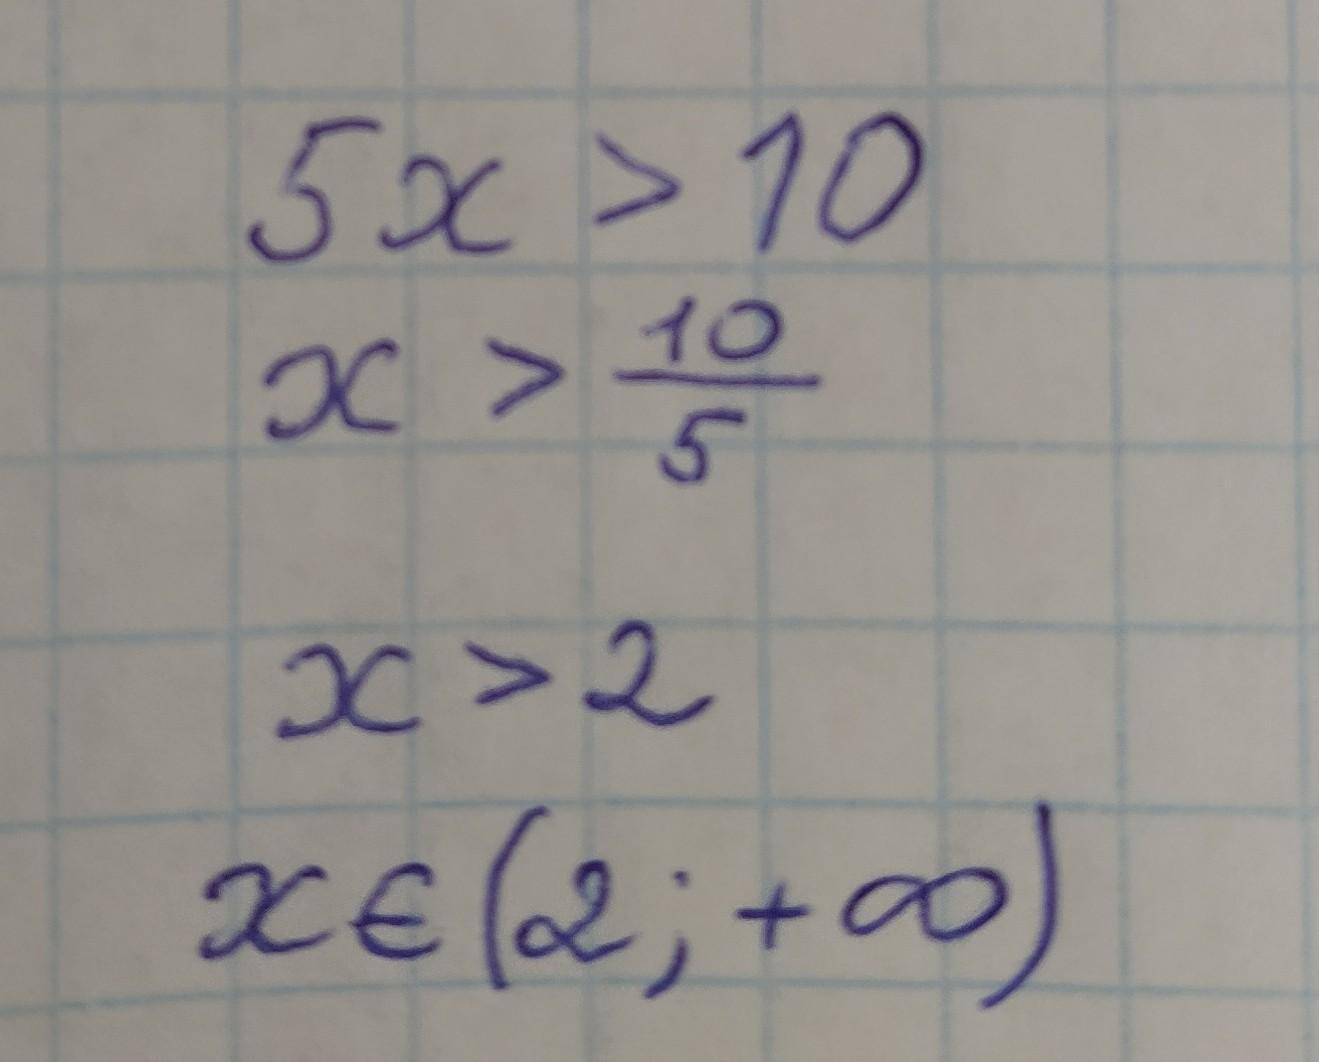 5x > 10
x > 10/5
x > 2
x ∈ (2; +∞)